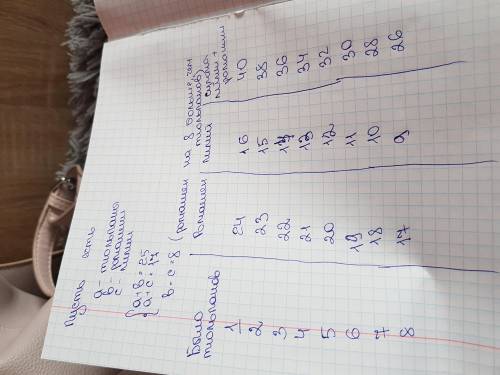 Пусть есть
a - тюльпаны
b - ромашки
c - лилии
{ a + b = 25
a + c = 17
b - c = 8 (ромашек на 8 больше, чем
тюльпанов)
Было тюльпанов Ромашек лилий сумма лилии + ромашки
1 24 16 40
2 23 15 38
3 22 14 36
4 21 13 34
5 20 12 32
6 19 11 30
7 18 10 28
8 17 9 26